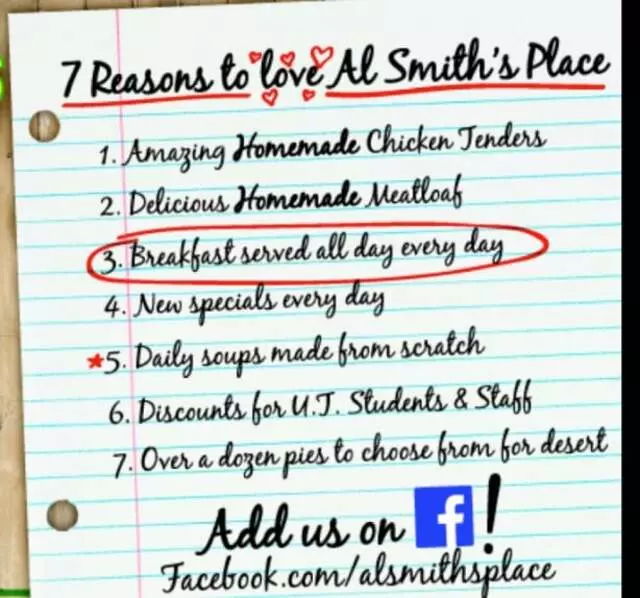 7 Reasons to love Al Smith's Place
1. Amazing Homemade Chicken Tenders
2. Delicious Homemade Meatloaf
3. Breakfast served all day every day
4. New specials every day
*5. Daily soups made from scratch
6. Discounts for U.T. Students & Staff
7. Over a dozen pies to choose from for desert
Add us on f!
Facebook.com/alsmithsplace